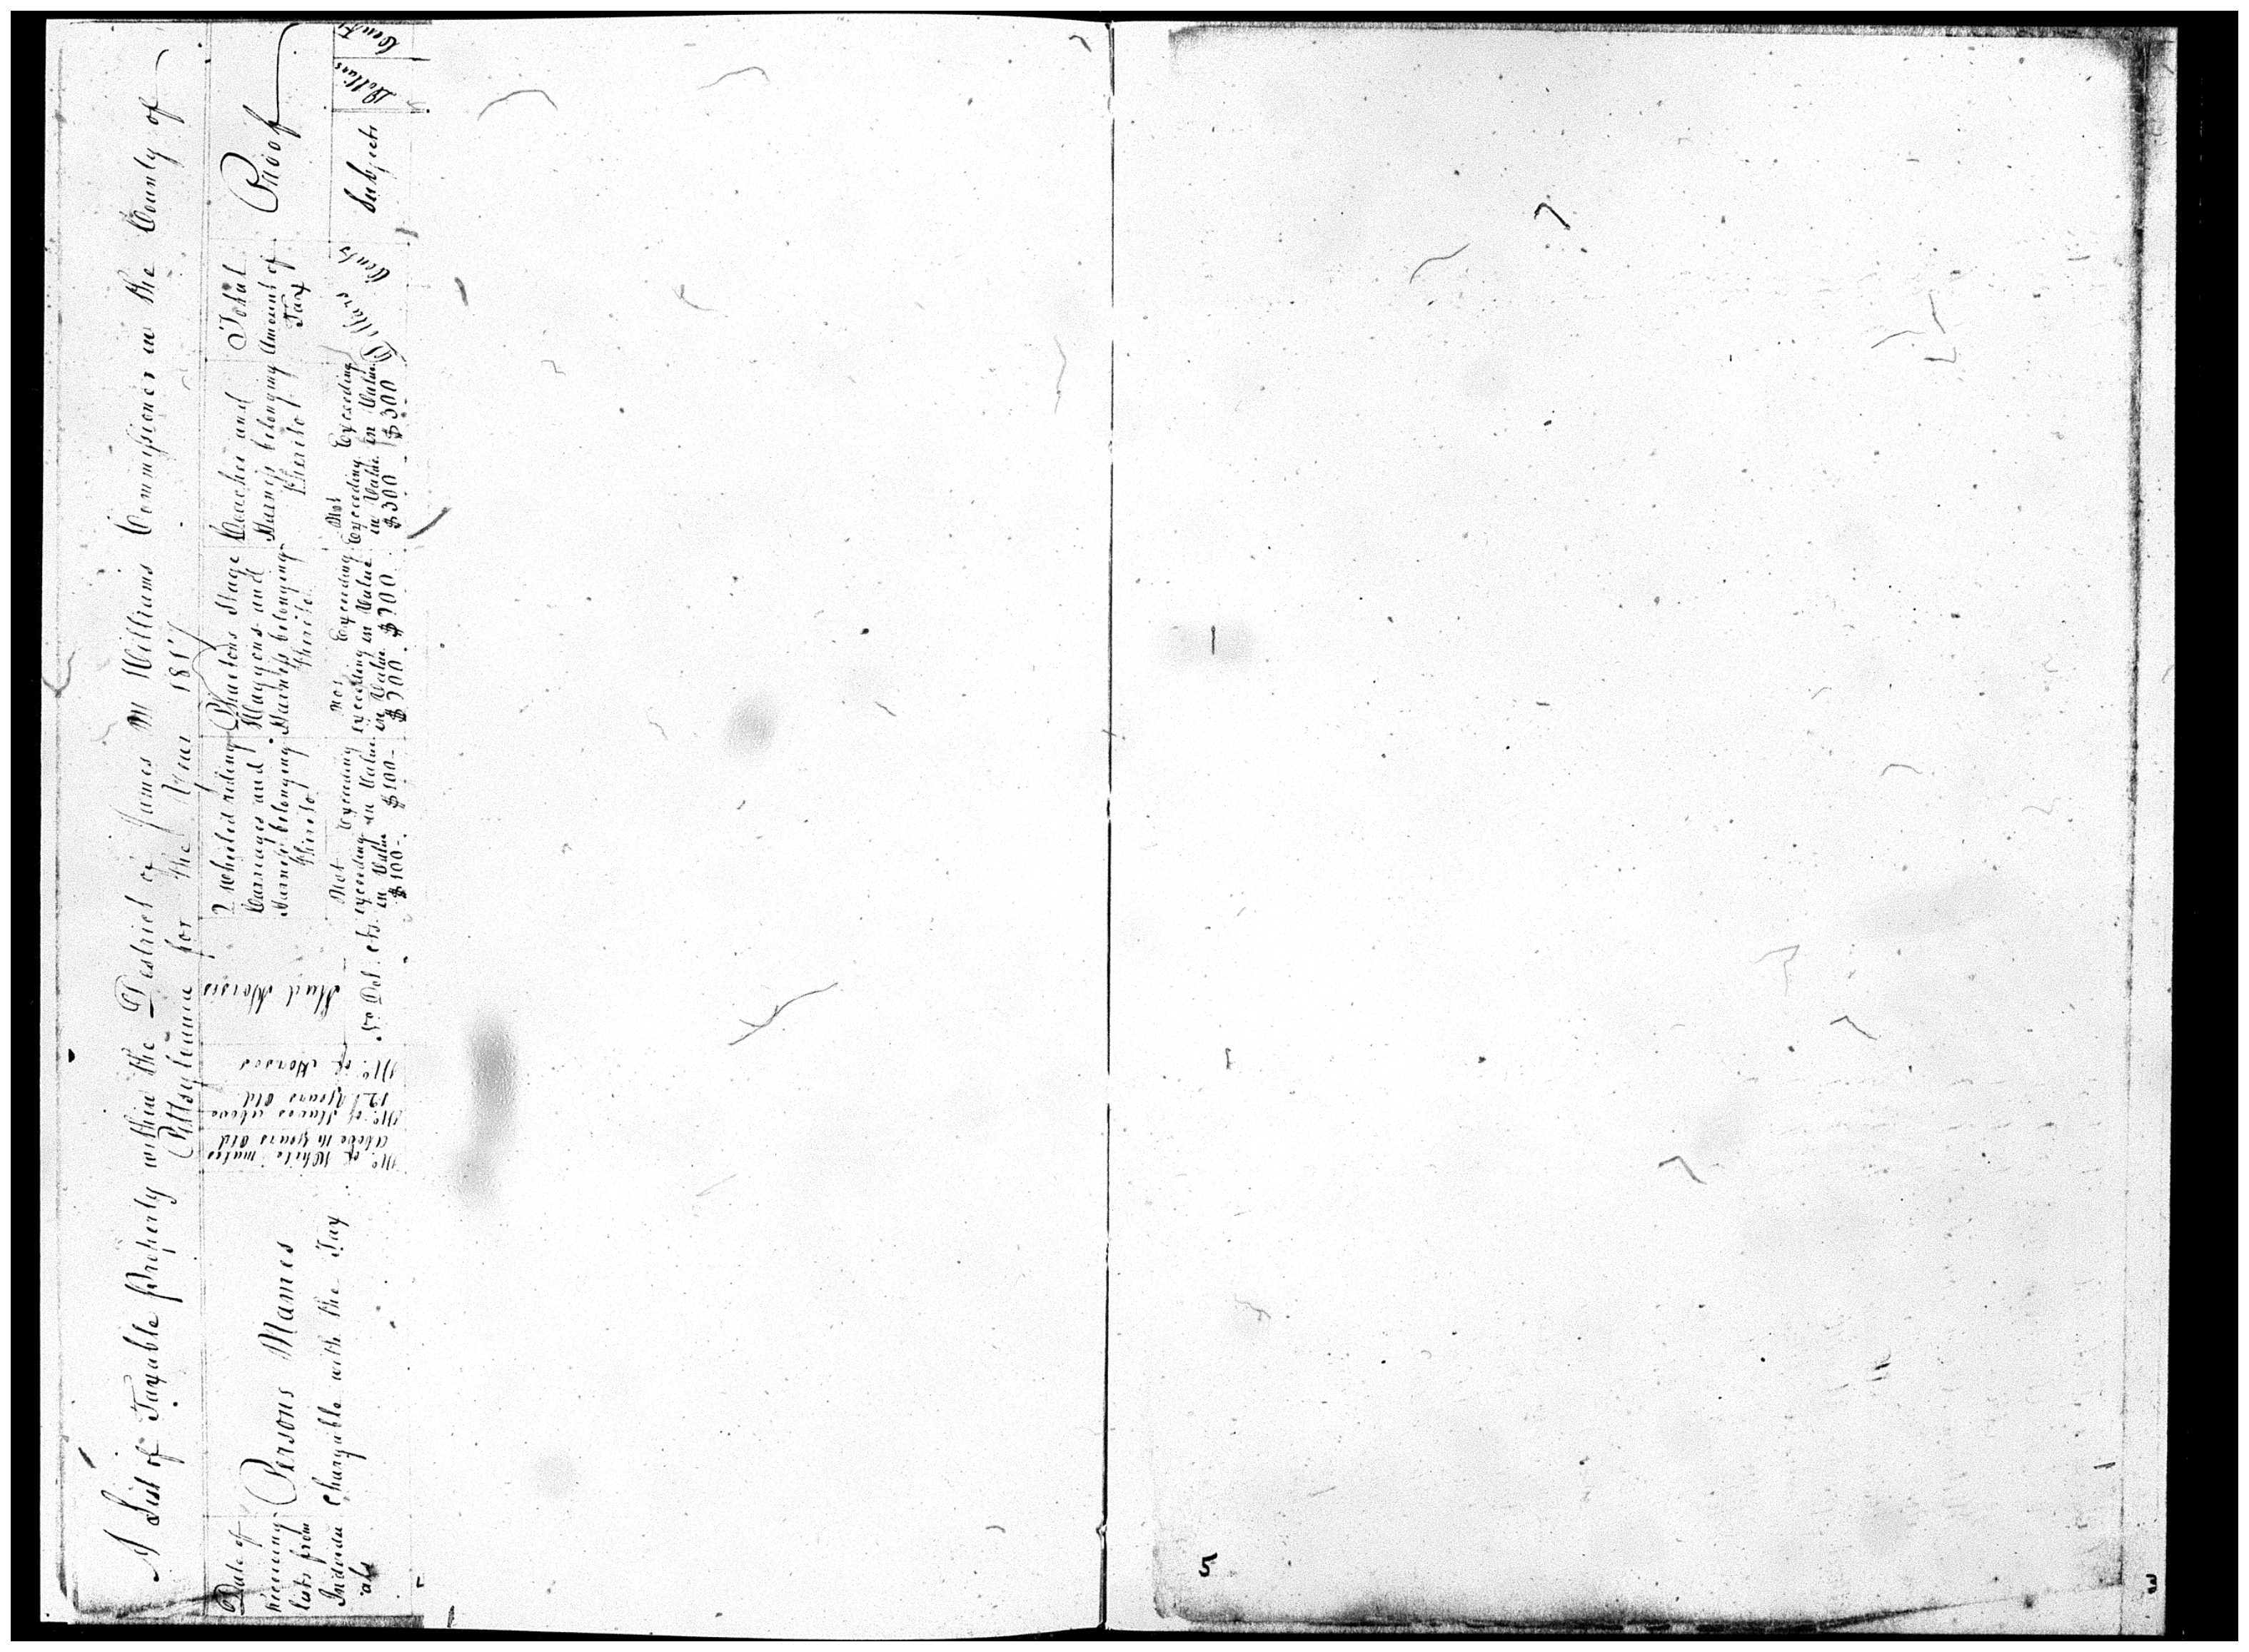 A List of Taxable Property within the District of James M Williams Commissioner in the County of
Pittsylvania for the Year 1817
Date of
receiving
lists from
Individu
als
Persons Names
Chargable with the Tax
No. of White males
above 16 years old
No. of Slaves above
12 years old
No. of Horses
Stud Horses
Dol. cts.
2 wheeled riding
Carriages and
Harness belonging
thereto
Not
exceeding
in Value
$100-
exceeding
in Value
$100-
Phaetons Stage
Waggons and
Harness belonging
thereto
Not
exceeding
in Value
$200
Exceeding
in Value
$200
Coaches and
Harness belonging
thereto
Not
Exceeding
in Value
$300
Exceeding
in Value
$300
Total
Amount of
Tax
Dollars
Cents
Proof
Subjects
Dollars
Cents
5
3